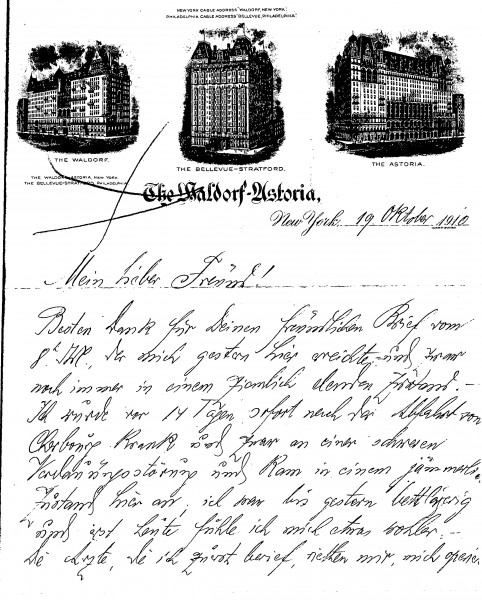 NEW YORK CABLE ADDRESS "WALDORF, NEW YORK."
PHILADELPHIA CABLE ADDRESS "BELLEVUE, PHILADELPHIA."
THE WALDORF.
THE BELLEVUE-STRATFORD.
THE ASTORIA.
THE WALDORF-ASTORIA, NEW YORK.
THE BELLEVUE-STRATFORD, PHILADELPHIA.
The Waldorf-Astoria,
New York. 19 Oktober 1910
Mein lieber Freund!
Besten Dank für Deinen freundlichen Brief vom
8t. der mich gestern hier erreichte und zwar
noch immer in einem ziemlich elenden Zustand. –
Ich wurde vor 14 Tagen sofort nach der Abfahrt von
Cherbourg krank und zwar an einer schweren
Verdauungsstörung und kam in einem jämmerl.
Zustand hier an, ich war bis gestern bettlägerig
und erst heute fühle ich mich etwas wohler. –
Die Ärzte, die ich zuerst berief, rieten mir, mich